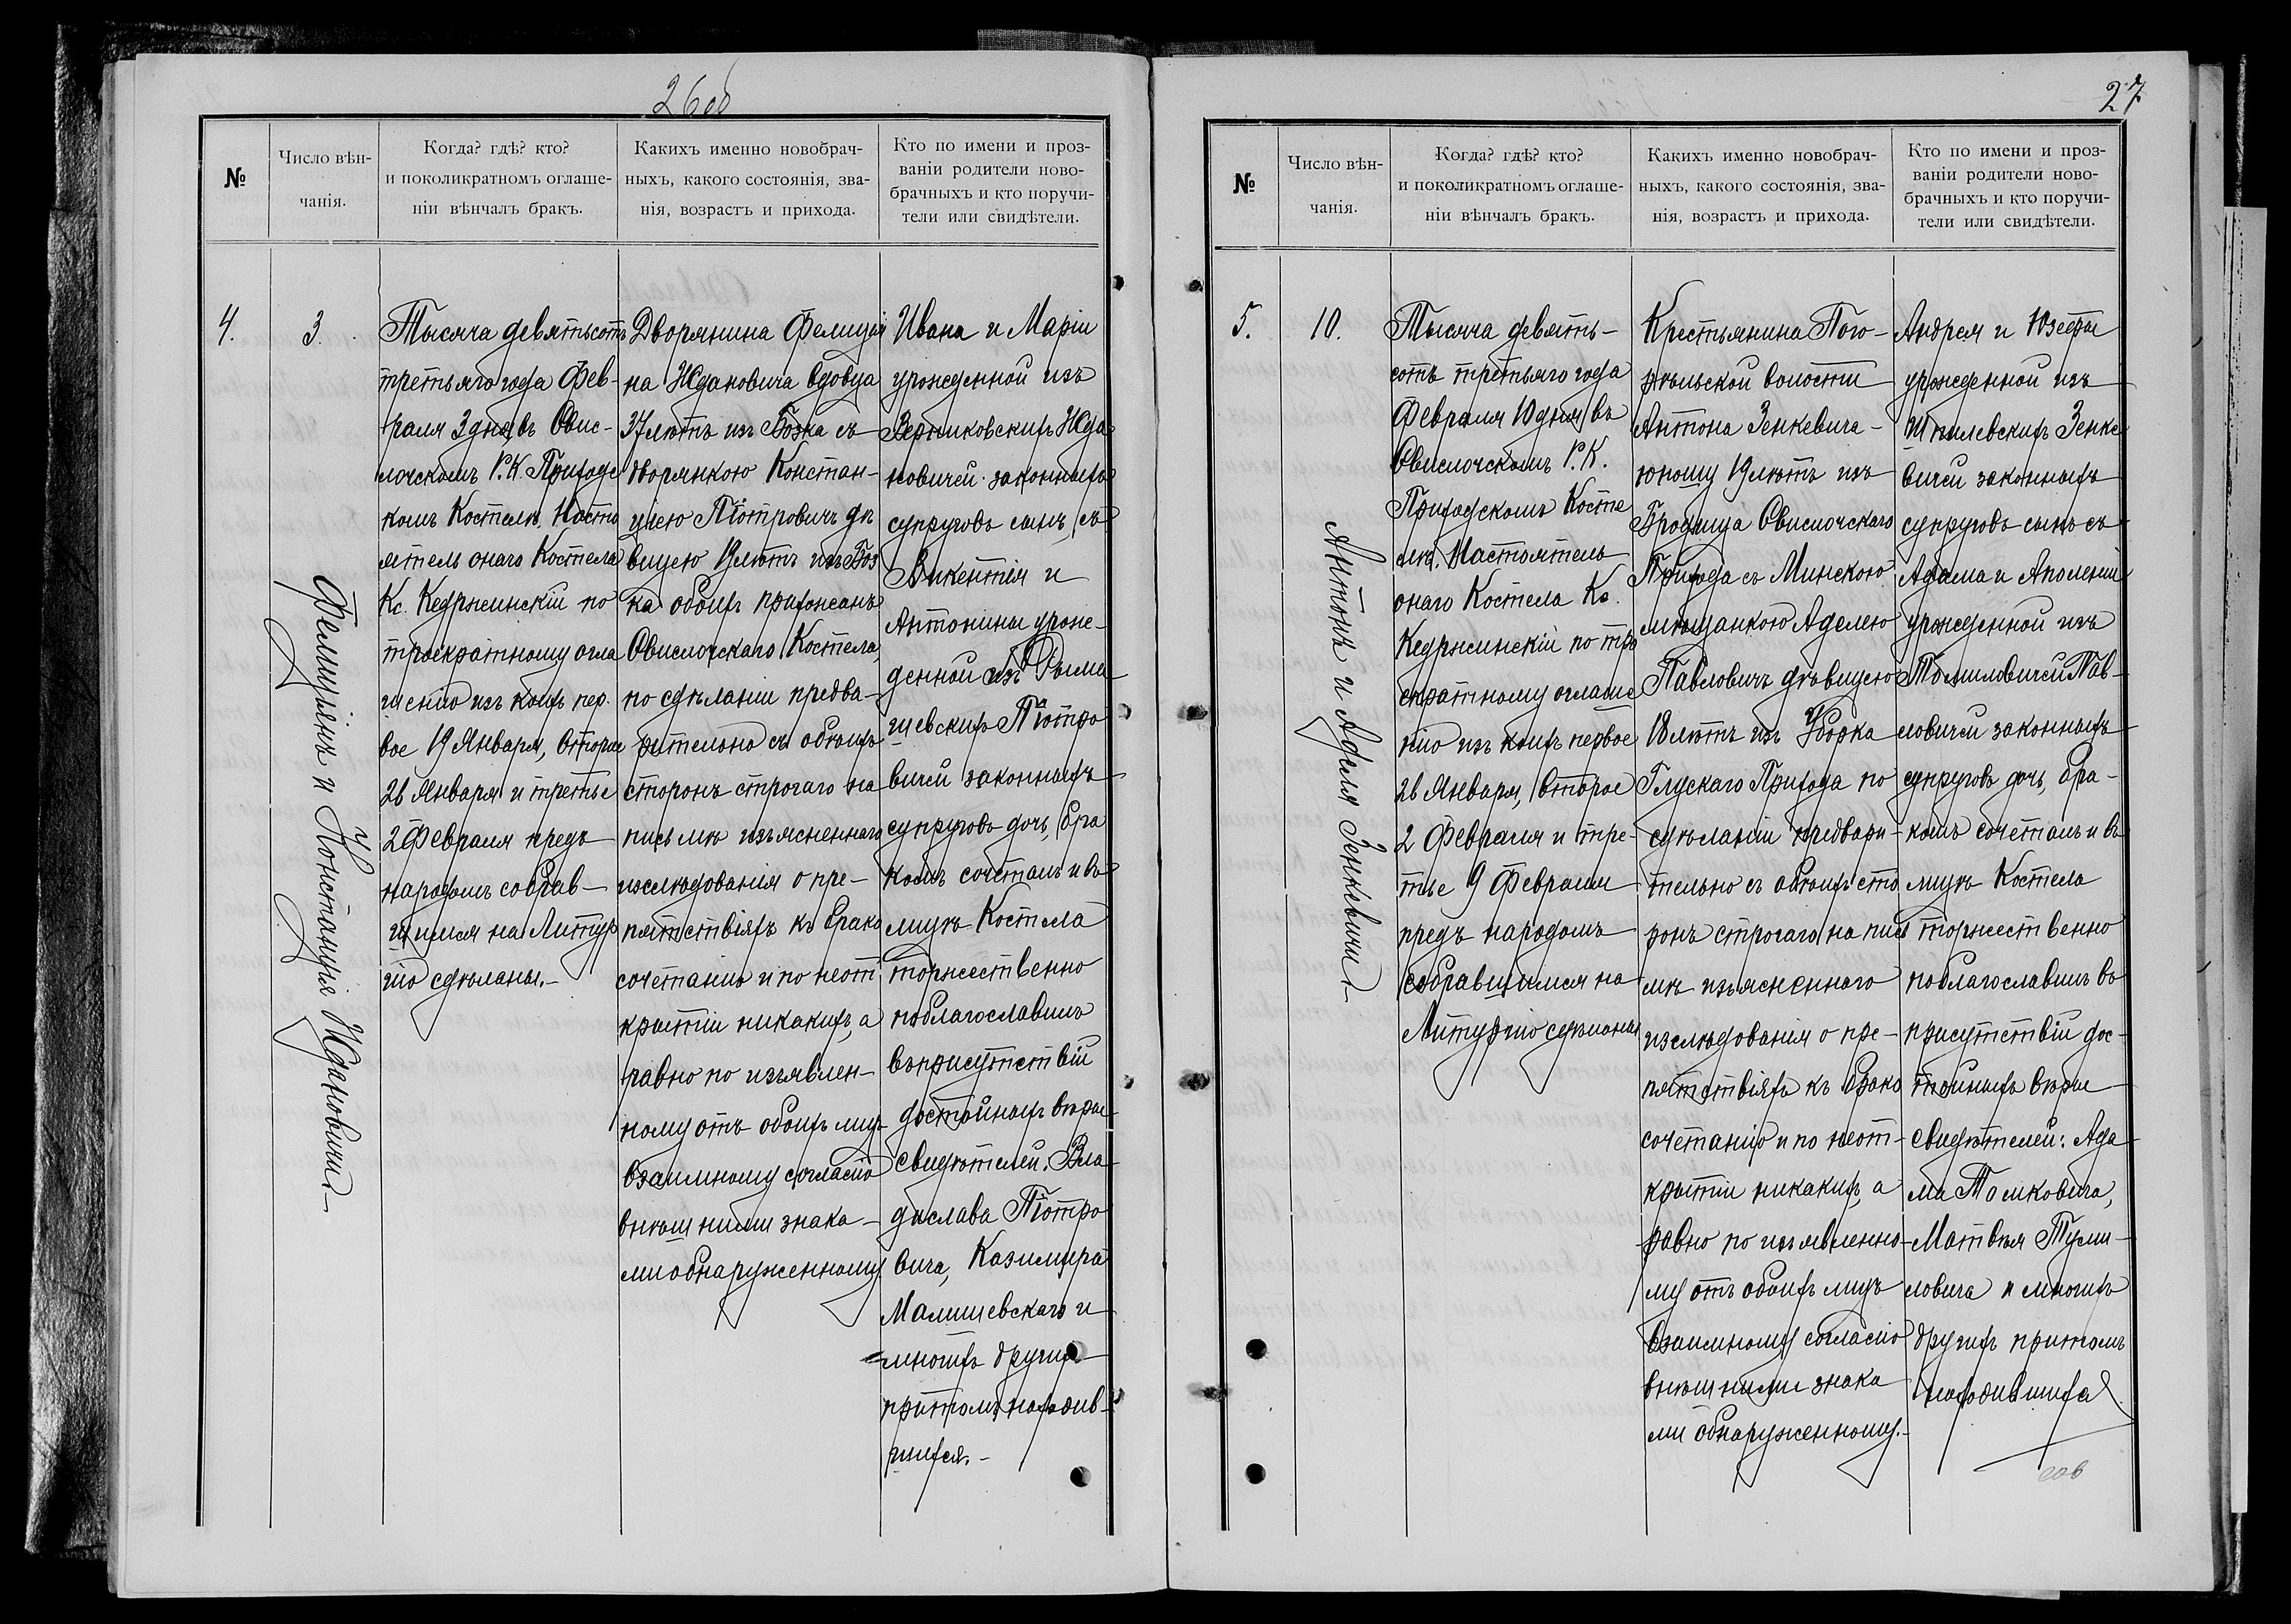 26об
№
Число вѣн-
чанія.
Когда? гдѣ? кто?
и поколикратномъ оглаше-
ніи вѣнчалъ бракъ.
Какихъ именно новобрач-
ныхъ, какого состоянія, зва-
нія, возрастъ и прихода.
Кто по имени и проз-
ваніи родители ново-
брачныхъ и кто поручи-
тели или свидѣтели.
4.
3.
Фелиціянъ и Констанція Ждановичи
Тысяча девятьсотъ
третьяго года Фев-
раля 3 дня, въ Овис-
лочскомъ Р. К. Приходс
комъ Костелѣ. Насто
ятель онаго Костела
Кс. Кедржинскій по
троекратному огла
шенію изъ коихъ пер-
вое 19 Января, второе
26 Января и третье
2 Февраля предъ
народомъ собрав-
шимся на Литур
гію сдѣланы.-
Дворянина Фелиція
на Ждановича вдовца
37 лѣтъ изъ Бозка съ
дворянкою Констан-
ціею Піотровичъ дѣ
вицею 19 лѣтъ изъ Боз
ка обоихъ прихожанъ
Овислочскаго Костела,
по сдѣланіи предва-
рительно съ обоихъ
сторонъ строгаго на
письмѣ изъясненнаго
изслѣдованія о пре-
пятствіяхъ къ брако
сочетанію и по неот
крытіи никакихъ, а
равно по изъявлен-
ному отъ обоихъ лицъ
взаимному согласію
внѣшними знака-
ми обнаруженному.
Ивана и Маріи
урожденной изъ
Верниковскихъ Жда
новичей законныхъ
супруговъ сынъ, съ
Викентія и
Антонины урож-
денной изъ Рыма
шевскихъ Піотро
вичей законныхъ
супруговъ дочь, бра
комъ сочеталъ и въ
лицѣ Костела
торжественно
поблагославилъ
въ присутствіи
достойныхъ вѣры
свидѣтелей: Вла
дислава Піотро
вича, Казиміра
Малишевскаго и
многихъ другихъ
притомъ находив-
шихся.-
27
№
Число вѣн-
чанія.
Когда? гдѣ? кто?
и поколикратномъ оглаше-
ніи вѣнчалъ бракъ.
Какихъ именно новобрач-
ныхъ, какого состоянія, зва-
нія, возрастъ и прихода.
Кто по имени и проз-
ваніи родители ново-
брачныхъ и кто поручи-
тели или свидѣтели.
5.
10.
Антонъ и Аделя Зенкевичи
Тысяча девять-
сотъ третьяго года
Февраля 10 дня, въ
Овислочскомъ Р. К.
Приходскомъ Косте
лѣ. Настоятель
онаго Костела Кс.
Кедржинскій по тро
екратному оглаше
нію изъ коихъ первое
26 Января, второе
2 Февраля и тре-
тье 9 Февраля
предъ народомъ
собравшимся на
Литургію сдѣланы
Крестьянина Пого-
рѣльской волости
Антона Зенкевича
юношу 19 лѣтъ изъ
Бродища Овислочскаго
Прихода съ Минскою
мѣщанкою Аделею
Павловичъ дѣвицею
18 лѣтъ изъ Уборка
Глускаго Прихода по
сдѣланіи предвари-
тельно съ обоихъ сто
ронъ строгаго на пись
мѣ изъясненнаго
изслѣдованія о пре-
пятствіяхъ къ брако
сочетанію и по неот-
крытіи никакихъ, а
равно по изъявленно-
му отъ обоихъ лицъ
взаимному согласію
внѣшними знака
ми обнаруженному.-
Андрея и Юзефы
урожденной изъ
Шпилевскихъ Зенке
вичей законныхъ
супруговъ сынъ съ
Адама и Аполеніи
урожденной изъ
Томиловичей Пав-
ловичей законныхъ
супруговъ дочь, бра-
комъ сочеталъ и въ
лицѣ Костела
торжественно
поблагославилъ въ
присутствіи дос-
тойныхъ вѣры
свидѣтелей: Ада
ма Томковича,
Матвѣя Туми-
ловича и многихъ
другихъ притомъ
находившихся